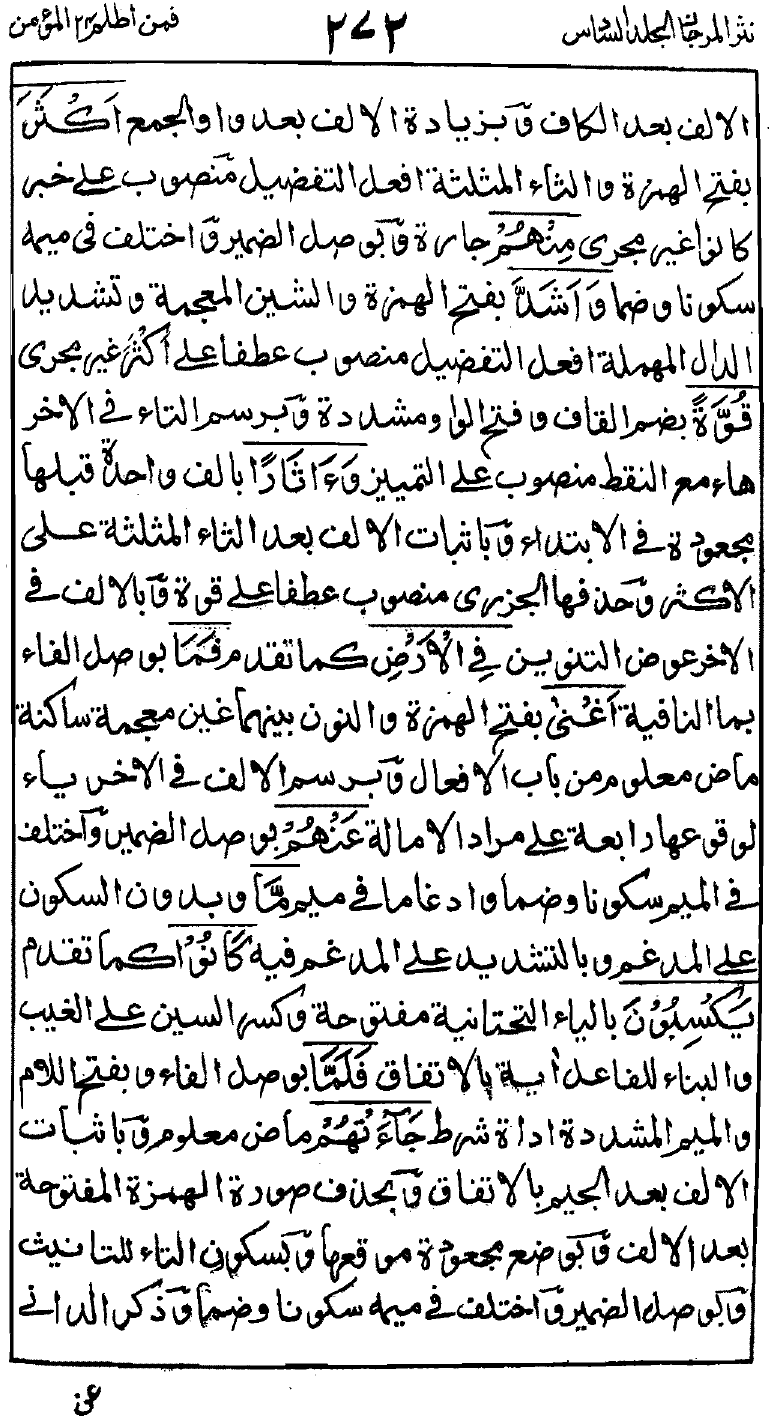 نثر المرجان المجلد السادس
٢٧٢
فمن اظلم ٢٤ المؤمن
الالف بعد الكاف وَبزيادة الالف بعد واو الجمع اَكْثَرَ
بفتح الهمزة والثاء المثلثة افعل التفضيل منصوب على خبر
كانوا غير مجرى مِنْهُمْ جارة وَبوصل الضمير وَاختلف فى ميمه
سكونا وضما وَاَشَدَّ بفتح الهمزة والشين المعجمة وتشديد
الدال المهملة افعل التفضيل منصوب عطفا على اَكْثَرَ غير مجرى
قُوَّةً بضم القاف وفتح الواو مشددة وَبرسم التاء فى الاخر
هاء مع النقط منصوب على التمييز وَءَاثَارًا بالف واحدة قبلها
مجعودة فى الابتداء وَباثبات الالف بعد الثاء المثلثة على
الاكثر وَحذفها الجزرى منصوب عطفا على قوة وَبالالف فى
الاخر عوض التنوين فِى الْاَرْضِ كما تقدم فَمَا بوصل الفاء
بما النافية اَغْنٰى بفتح الهمزة والنون بينهما غين معجمة ساكنة
ماض معلوم من باب الافعال وَبرسم الالف فى الاخر ياء
لوقوعها رابعة على مراد الامالة عَنْهُمْ بوصل الضمير وَاختلف
فى الميم سكونا وضما وادغاما فى ميم مَّا وبدون السكون
على المدغم وبالتشديد على المدغم فيه كَانُوْا كما تقدم
يَكْسِبُوْنَ بالياء التحتانية مفتوحة وكسر السين على الغيب
والبناء للفاعل اية بالاتفاق فَلَمَّا بوصل الفاء وبفتح اللام
والميم المشددة اداة شرط جَآءَتْهُمْ ماض معلوم وَباثبات
الالف بعد الجيم بالاتفاق وَبحذف صورة الهمزة المفتوحة
بعد الالف وَبوضع مجعودة موقعها وَبسكون التاء للتانيث
وَبوصل الضمير وَاختلف فى ميمه سكونا وضما وَذكر الدانى
عن